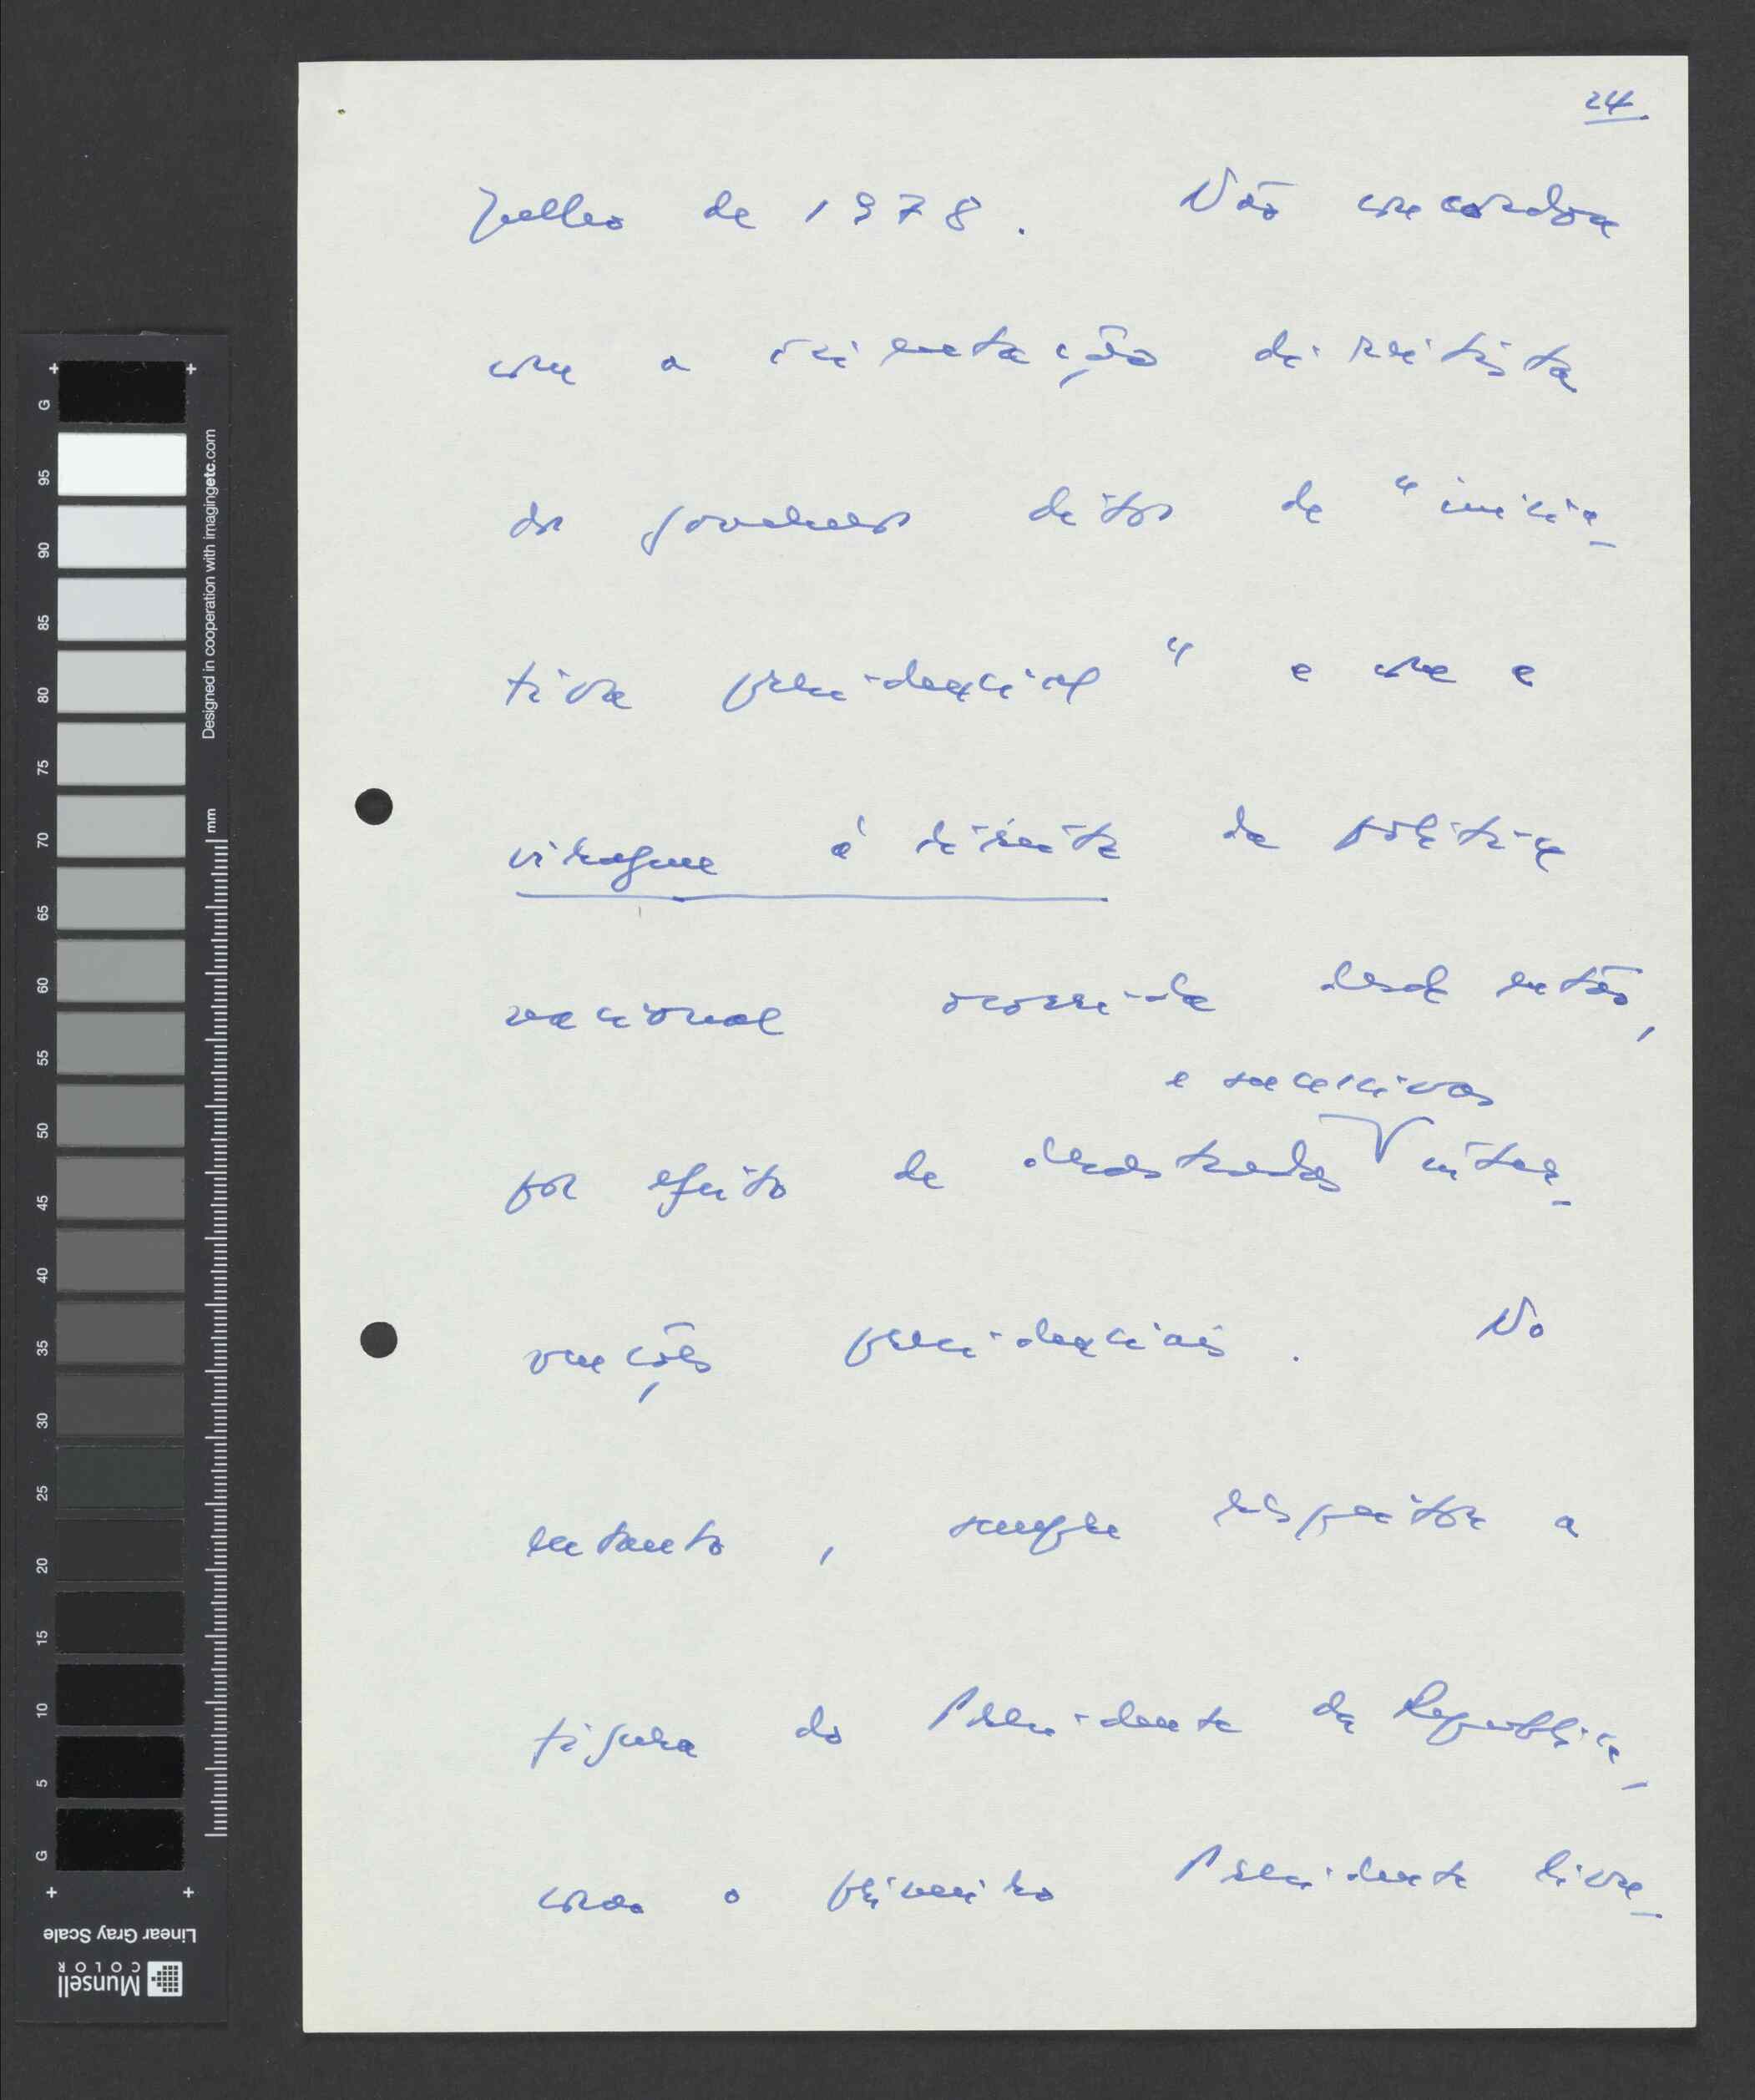 24
Julho de 1978. Não concordou
com a orientação direitista
dos governos ditos de "inicia-
tiva presidencial" e com a
viragem à direita da política
nacional ocorrida desde então,
e sucessivas
por efeito de desastradas inter-
venções presidenciais. No
entanto, sempre respeitou a
figura do Presidente da República,
como o primeiro Presidente livre-
G
95
90
85
80
75
70
65
60
55
50
45
40
35
30
25
20
15
10
5
G
mm
Designed in cooperation with imagingetc.com
Linear Gray Scale
Munsell
COLOR